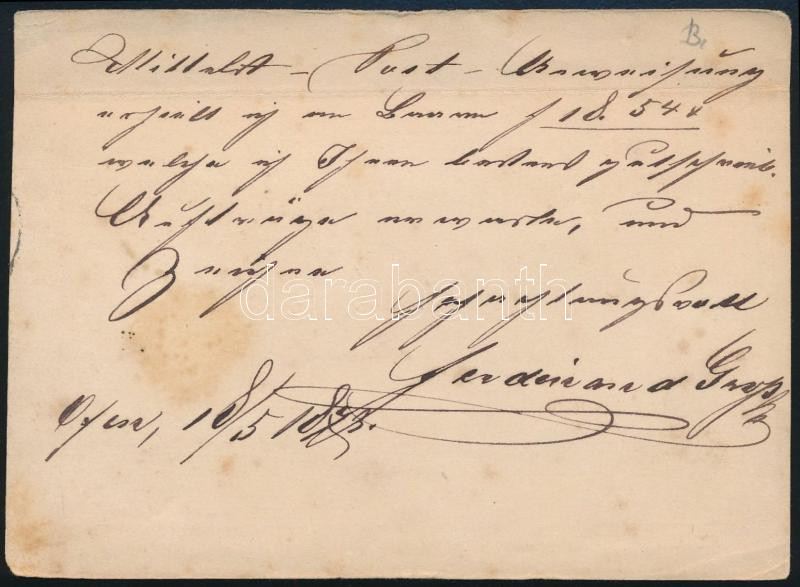 B.
Mittelst – Post – Anweisung
erhielt ich in Baarem f 18. 54 x
welche ich Ihnen bestens gutschreib.
Aufträge erwarte, und
Zeichne
Hochachtungsvoll
Ferdinand Groß
Ofen, 18/5 1873.
darabanth